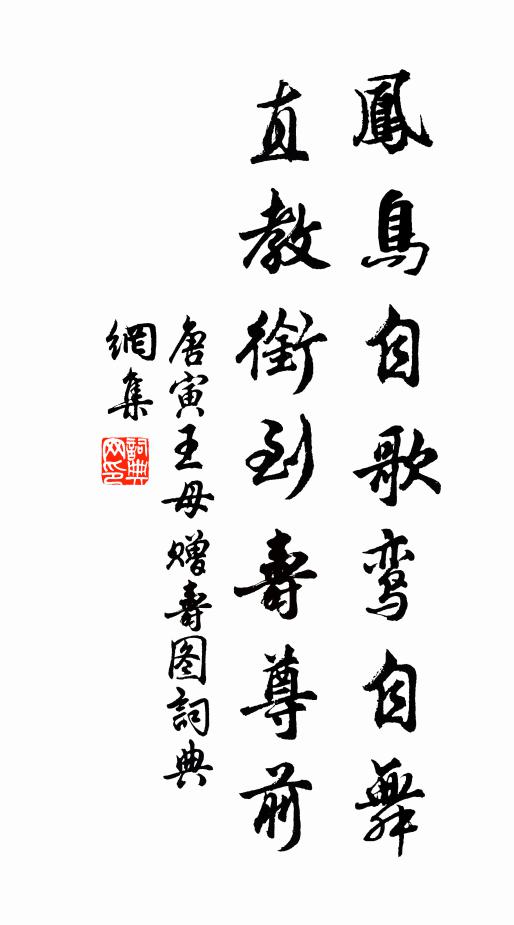 鳳鳥自歌鸾自舞
直教銜到壽尊前
唐寅王母赠壽图詞典
網集
詞典網印